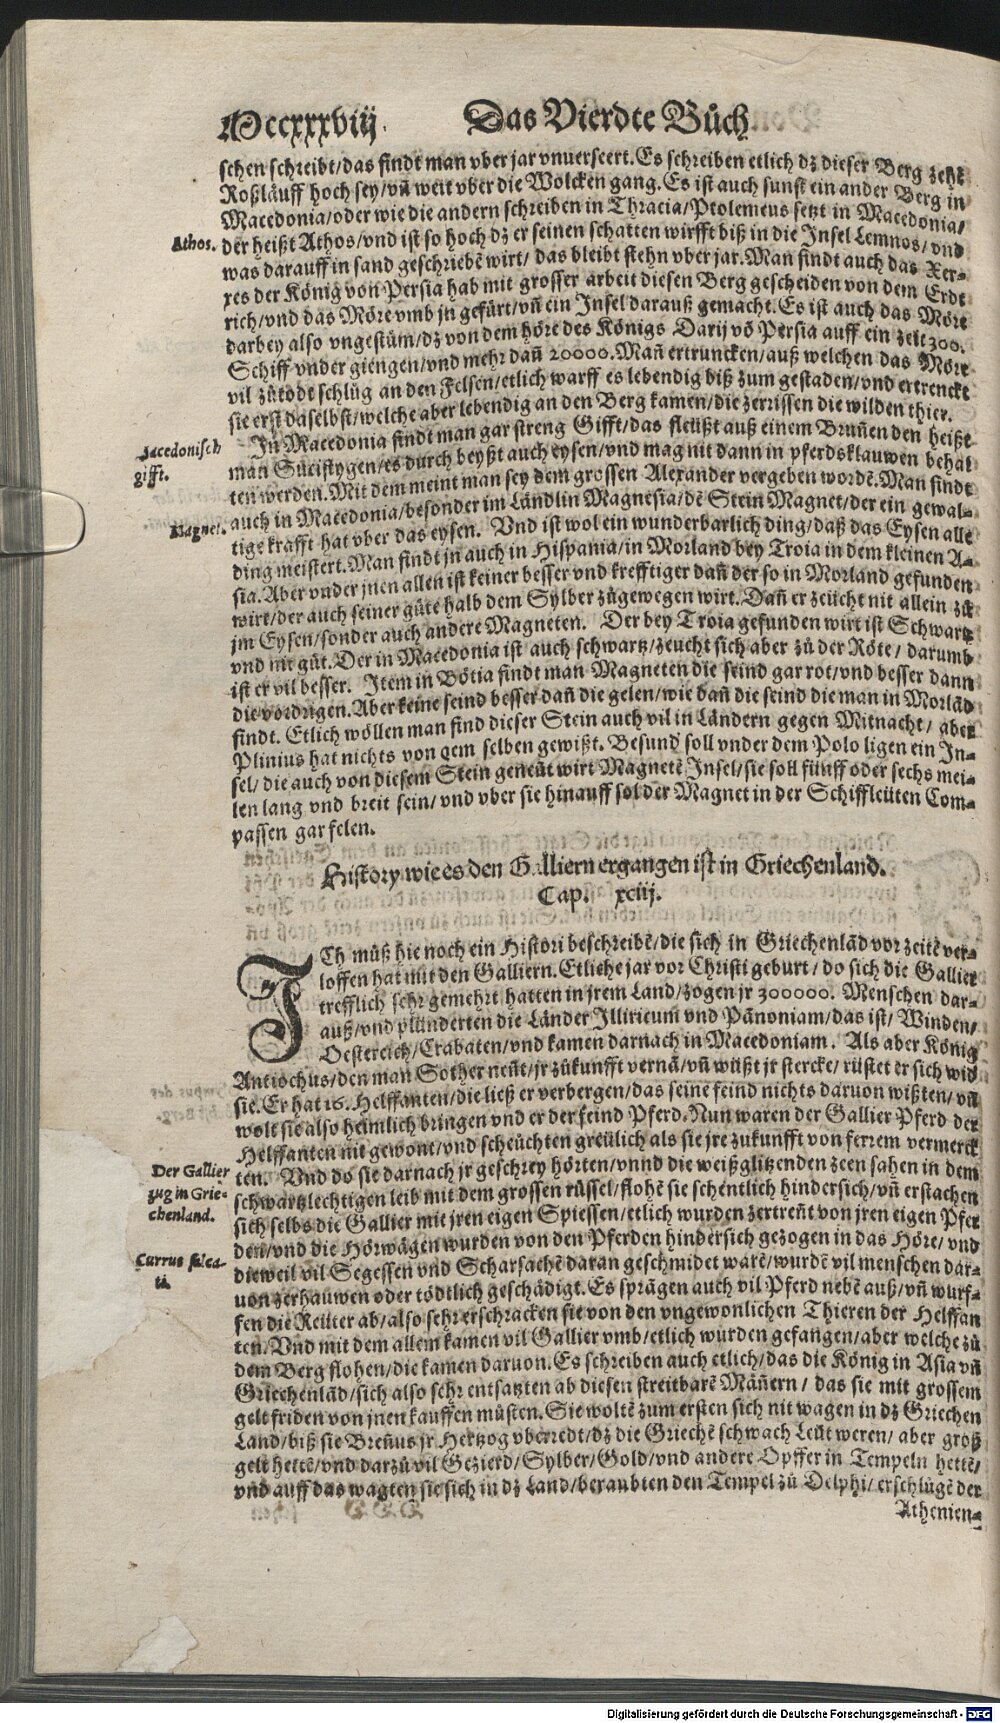 Mccxxxviij. Das Vierdte Bůch
schen schreibt/das findt man vber jar vnuerseert. Es schreiben etlich dz dieser Berg zehē
Roßläuff hoch sey/vñ weit vber die Wolcken gang. Es ist auch sunst ein ander Berg in
Macedonia/oder wie die andern schreiben in Thracia/Ptolemeus setzt in Macedonia/
Athos.
der heißt Athos/vnd ist so hoch dz er seinen schatten wirfft biß in die Insel Lemnos/vnd
was darauff in sand geschriebē wirt/ das bleibt stehn vber jar. Man findt auch das Xer=
xes der König von Persia hab mit grosser arbeit diesen Berg gescheiden von dem Erdt
rich/vnd das Möre vmb jn gefürt/vñ ein Insel darauß gemacht. Es ist auch das Möre
darbey also vngestüm/dz von dem höre des Königs Darij vō Persia auff ein zeit 300.
Schiff vnder giengen/vnd mehr dañ 20000. Mañ ertruncken/auß welchen das Möre
vil zůtodt schlůg an den Felsen/etlich warff es lebendig biß zum gestaden/vnd ertrenckt
sie erst daselbst/welche aber lebendig an den Berg kamen/die zerrissen die wilden thier.
Macedonisch
gifft.
In Macedonia findt man gar streng Gifft/das fleüßt auß einem Brunnen den heißt
man Sucistygen/es durch beyßt auch eysen/vnd mag nit dann in pferdsklauwen behal
ten werden. Mit dem meint man sey dem grossen Alexander vergeben wordē. Man findt
Magnet.
auch in Macedonia/besonder im Ländlin Magnesia/dē Stein Magnet/der ein gewal=
tige krafft hat vber das eysen. Vnd ist wol ein wunderbarlich ding/daß das Eysen alle
ding meistert. Man findt jn auch in Hispania/in Morland bey Troia in dem kleinen A=
sia. Aber vnder jnen allen ist keiner besser vnd krefftiger dañ der so in Morland gefunden
wirt/der auch seiner güte halb dem Sylber zůgewegen wirt. Dañ er zeücht nit allein zů
jm Eysen/sonder auch andere Magneten. Der bey Troia gefunden wirt ist Schwartz
vnd nit gůt. Der in Macedonia ist auch schwartz/zeucht sich aber zů der Röte/ darumb
ist er vil besser. Item in Bötia findt man Magneten die seind gar rot/vnd besser dann
die vordrigen. Aber keine seind besser dañ die gelen/wie dañ die seind die man in Morlād
findt. Etlich wöllen man find dieser Stein auch vil in Ländern gegen Mitnacht/ aber
Plinius hat nichts von dem selben gewißt. Besund soll vnder dem Polo ligen ein In=
sel/ die auch von diesem Stein geneñt wirt Magnetē Insel/sie soll fünff oder sechs mei=
len lang vnd breit sein/ vnd vber sie hinauff sol der Magnet in der Schiffleüten Com=
passen gar felen.
History wie es den Galliern ergangen ist in Griechenland.
Cap. xciij.
ICh můß hie noch ein Histori beschreibē/die sich in Griechenlād vor zeitē ver=
loffen hat mit den Galliern. Etliche jar vor Christi geburt/ do sich die Gallier
trefflich sehr gemehrt hatten in jrem Land/zogen jr 300000. Menschen dar=
auß/vnd plünderten die Länder Illiricum vnd Pānoniam/das ist/ Winden/
Oestereich/Crabaten/vnd kamen darnach in Macedoniam. Als aber König
Antiochus/den man Sother neñt/jr zůkunfft vernā/vñ wüßt jr stercke/ rüstet er sich wid
sie. Er hat 16. Helffanten/die ließ er verbergen/das seine feind nichts daruon wißten/ vñ
wolt sie also heimlich bringen vnd er der feind Pferd. Nun waren der Gallier Pferd der
Helffanten nit gewont/vnd scheüchten greülich als sie jre zukunfft von ferrem vermerck
Der Gallier
zug in Grie=
chenland.
ten. Vnd do sie darnach jr geschrey hörten/vnnd die weißglitzenden zeen sahen in dem
schwartzlechtigen leib mit dem grossen rüssel/flohē sie schentlich hindersich/vñ erstachen
sich selbs die Gallier mit jren eigen Spiessen/etlich wurden zertreñt von jren eigen Pfer
Currus falca=
ti.
den/vnd die Hörwägen wurden von den Pferden hindersich gezogen in das Höre/ vnd
dieweil vil Segessen vnd Scharsachē daran geschmidet warē/wurdē vil menschen dar=
uon zerhauwen oder tödtlich geschädigt. Es sprāgen auch vil Pferd nebē auß/vñ wurf=
fen die Reüter ab/also sehr erschracken sie von den vngewonlichen Thieren der Helffan
ten. Vnd mit dem allem kamen vil Gallier vmb/etlich wurden gefangen/aber welche zů
dem Berg flohen/die kamen daruon. Es schreiben auch etlich/das die König in Asia vñ
Griechenlād/sich also sehr entsatzten ab diesen streitbarē Mäñern/ das sie mit grossem
gelt friden von jnen kauffen můsten. Sie woltē zum ersten sich nit wagen in dz Griechen
Land/biß sie Breñus jr Hertzog vberredt/dz die Griechē schwach Leüt weren/ aber groß
gelt hettē/vnd darzů vil Gezierd/Sylber/Gold/vnd andere Opffer in Tempeln hettē/
vnd auff das wagten sie sich in dz Land/beraubten den Tempel zů Delphi/ erschlůgē der
Athenien=
Digitalisierung gefördert durch die Deutsche Forschungsgemeinschaft - DFG